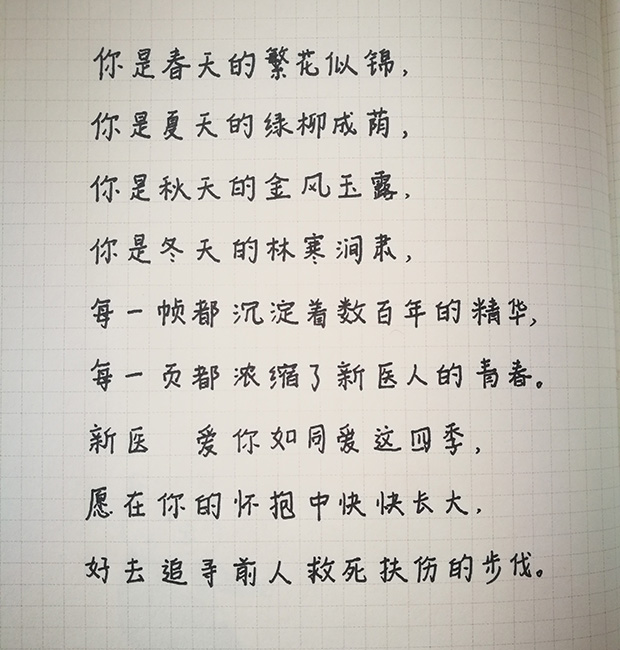 你是春天的繁花似锦,
你是夏天的绿柳成荫,
你是秋天的金风玉露,
你是冬天的林寒涧肃,
每一帧都沉淀着数百年的精华,
每一页都浓缩了新医人的青春。
新医 爱你如同爱这四季,
愿在你的怀抱中快快长大,
好去追寻前人救死扶伤的步伐。